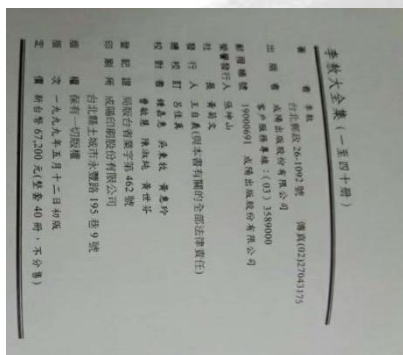 李敖大全集(一至四十冊)
著 者 李敖
台北郵政 26-1092 號 傳真(02)27043175
出 版 者 成陽出版股份有限公司
客戶服務專線：(03) 3589000
郵撥帳號 19000691 成陽出版股份有限公司
榮譽發行人 張坤山
社 長 黃菊文
發 行 人 王自義(與本書有關的全部法律責任)
總 校 訂 呂佳真
校 對 者 鍾嘉惠 吳東牧 黃惠玲
曾敏慧 陳淑純 黃世芬
登 記 證 局版台省業字第 462 號
印 刷 所 成陽印刷股份有限公司
台北縣土城市永豐路 195 巷 9 號
版 權 保有一切版權
版 次 一九九九年五月十二日初版
定 價 新台幣 67,200 元(整套 40 冊，不分售)